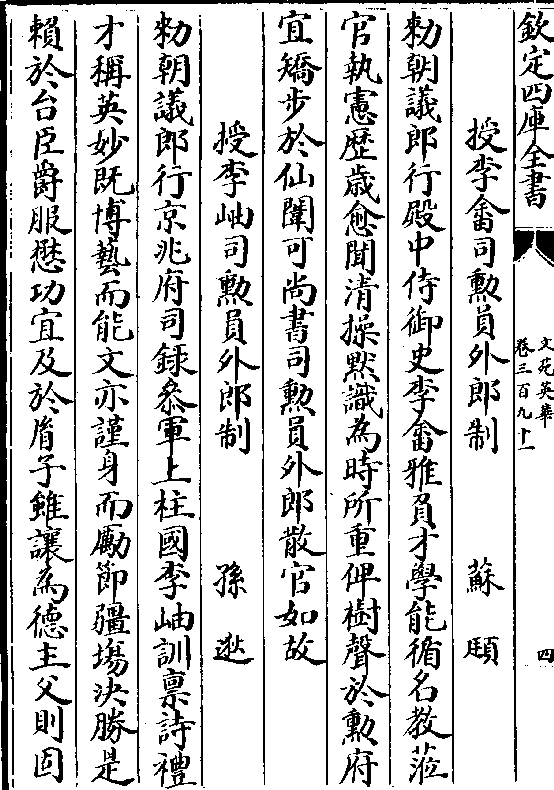 欽定四庫全書
文苑英華
卷三百九十一
四
授李畬司勲員外郎制
蘇頲
勅朝議郎行殿中侍御史李畬雅負才學能循名教蒞
官執憲歴歳愈聞清操黙識為時所重俾樹聲於勲府
宜矯步於仙闈可尚書司勲員外郎散官如故
授李岫司勲員外郎制
孫逖
勅朝議郎行京兆府司録叅軍上柱國李岫訓禀詩禮
才稱英妙既博藝而能文亦謹身而勵節疆場決勝是
賴於台臣爵服懋功宜及於胄子雖讓為德主父則固